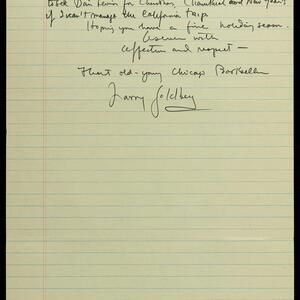 for Christmas, Chanukah and New Year's
if I can't manage the California trip.
Hope you have a fine holiday season.
As ever with
affection and respect —
That old-young Chicago Bookseller